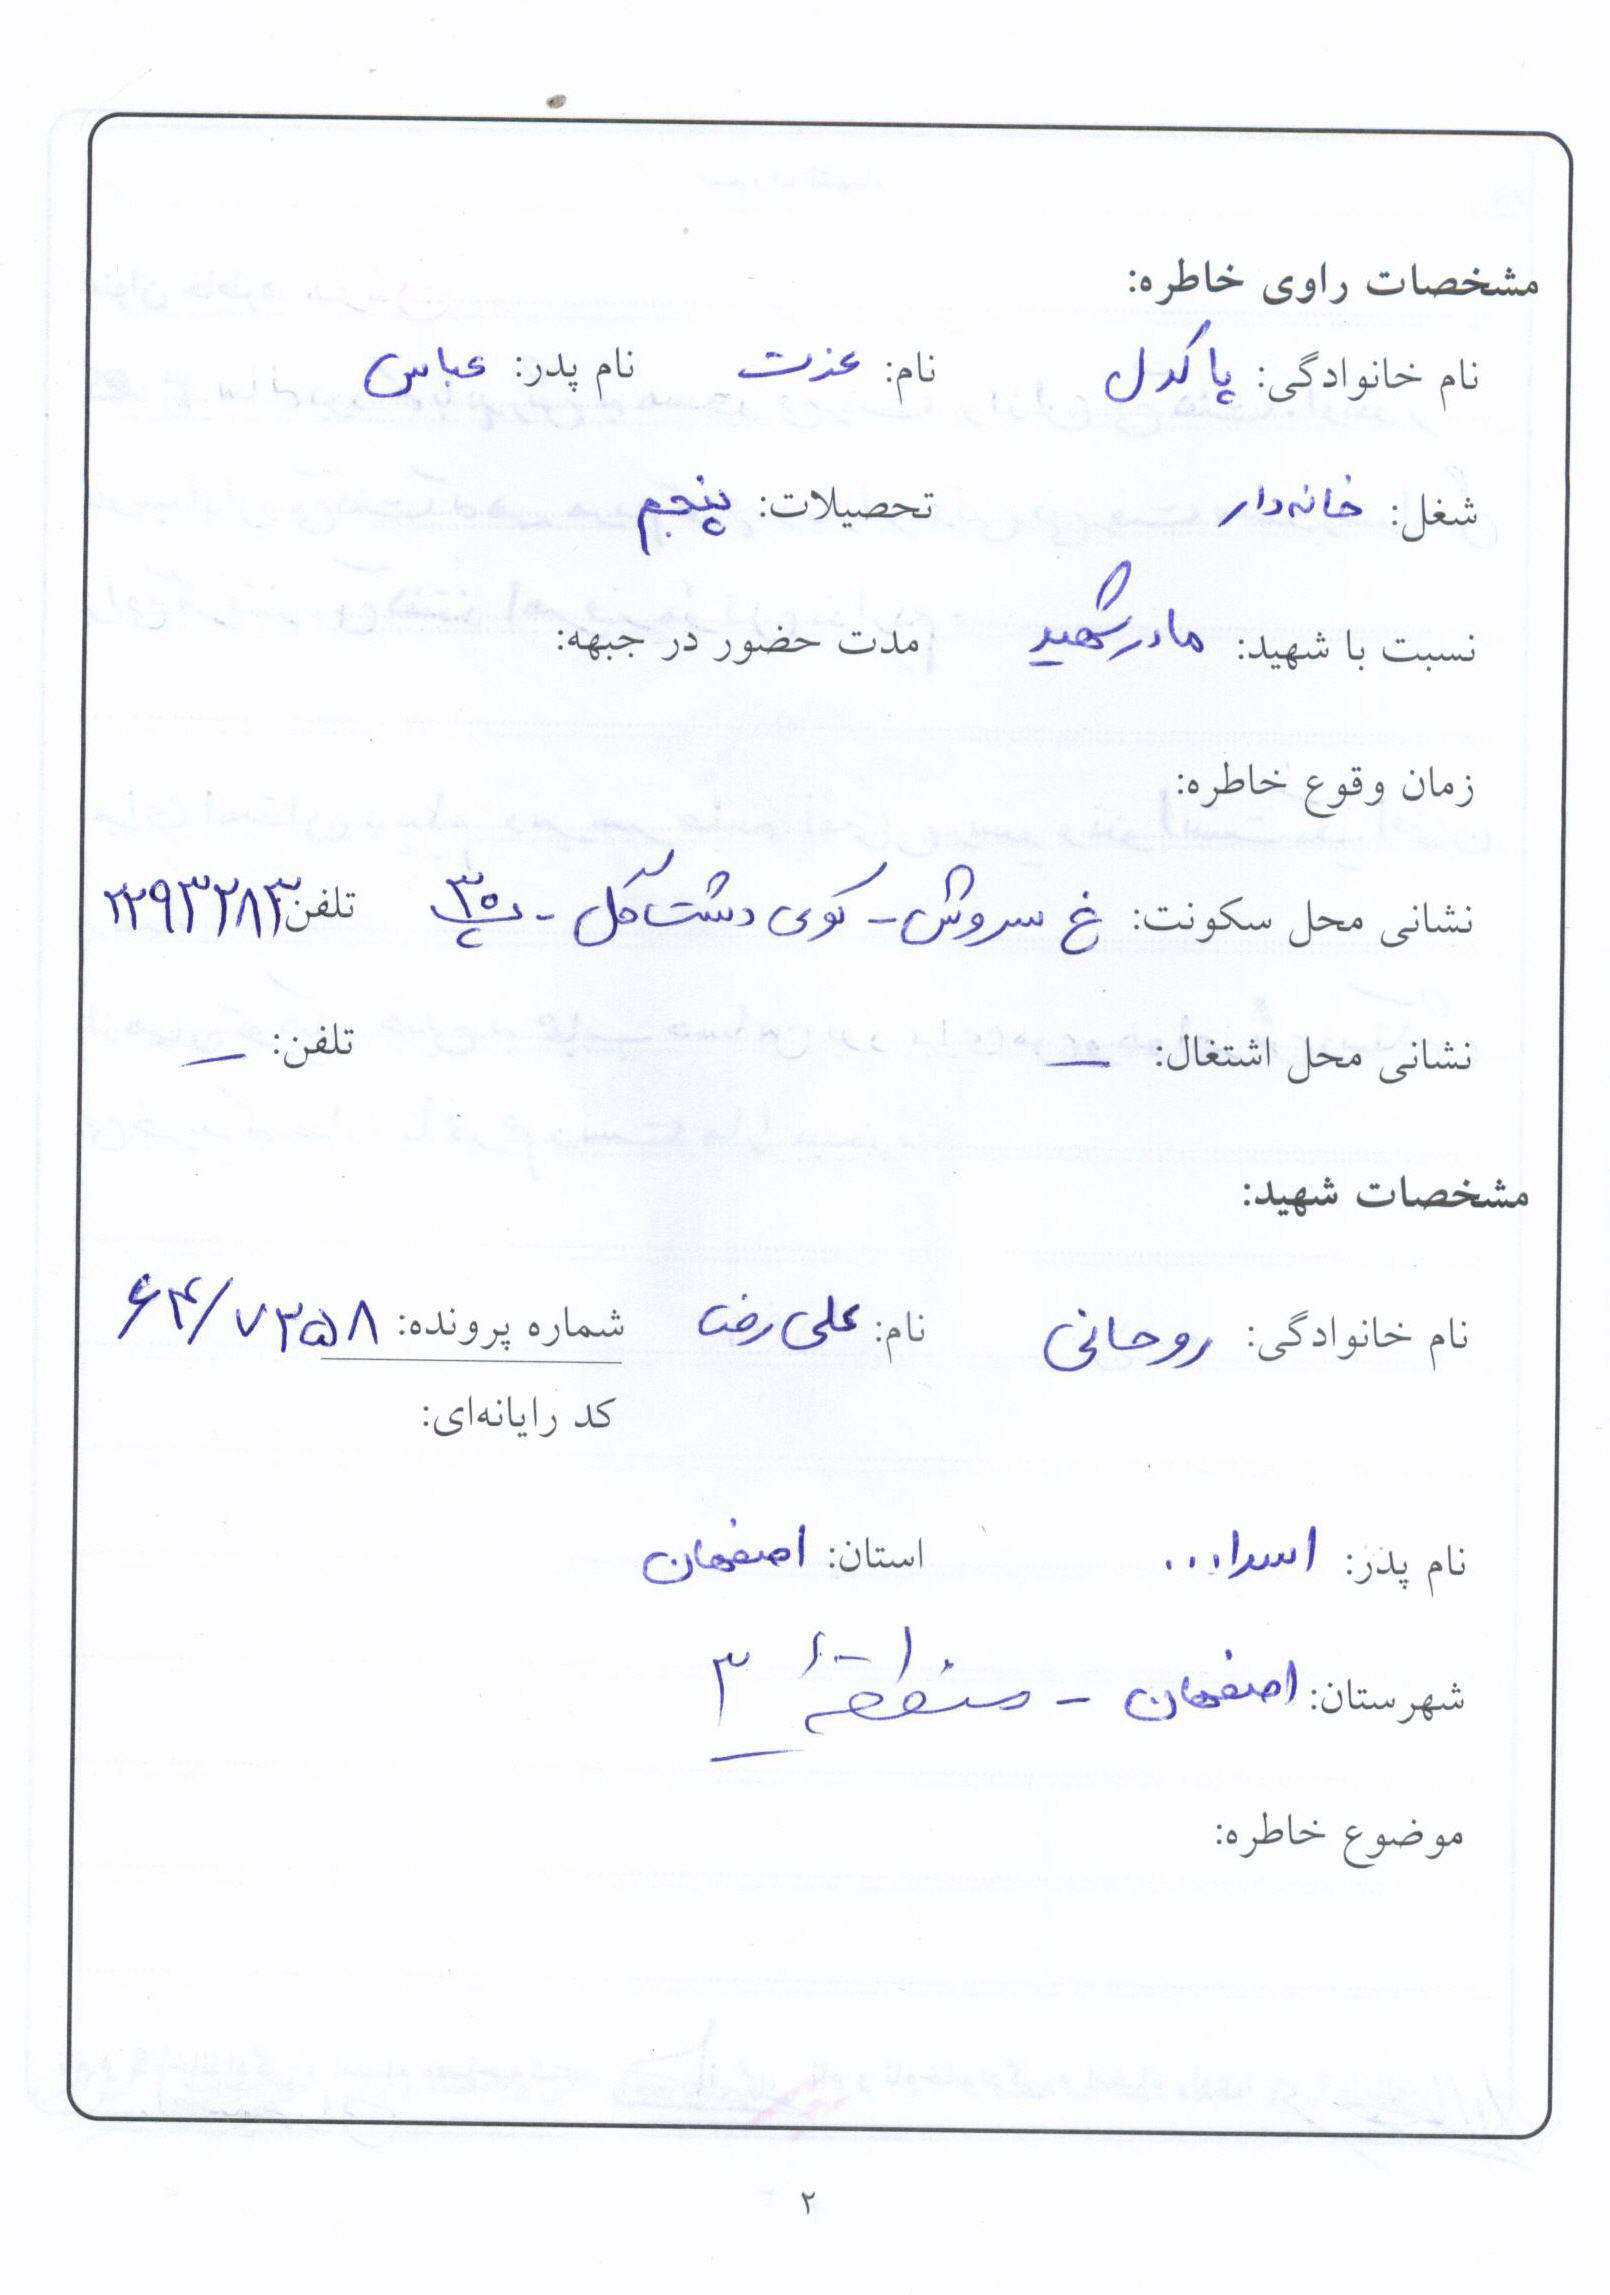 مشخصات راوی خاطره:
نام خانوادگی: پاکدل نام: عزت نام پدر: عباس
شغل: خانه‌دار تحصیلات: پنجم
نسبت با شهید: مادر شهید مدت حضور در جبهه:
زمان وقوع خاطره:
نشانی محل سکونت: خ سروش - کوی دشت گل - پ ۳۰ تلفن ۲۲۹۳۲۸۳
نشانی محل اشتغال: — تلفن: —
مشخصات شهید:
نام خانوادگی: روحانی نام: علی رضا شماره پرونده: ۶۴/۷۳۵۸
کد رایانه‌ای:
نام پدر: اسدا... استان: اصفهان
شهرستان: اصفهان - منطقهٔ ۳
موضوع خاطره:
۲